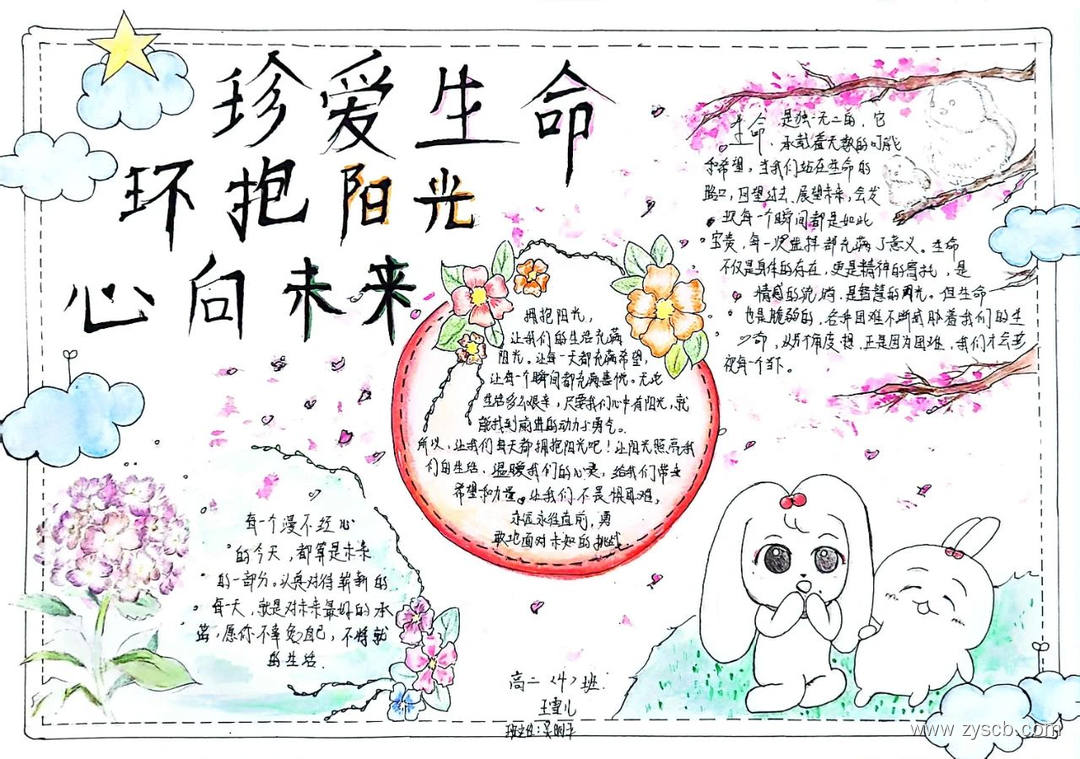 珍爱生命
环抱阳光
心向未来
生命,是独一无二的,它
承载着无数的可能
和希望,当我们站在生命的
路口,回望过去、展望未来,会发
现每一个瞬间都是如此
宝贵,每一次选择都充满了意义。生命
不仅是身体的存在,更是精神的寄托,是
情感的 是智慧的 但生命
也是脆弱的, 困难不断 着我们的生
命,从另个角度想,正是因为困难,我们才会
每一个
拥抱阳光,
让我们的生活充满
阳光。让每一天都充满希望
让每一个瞬间都充满喜悦。无论
生活多么艰辛,只要我们心中有阳光,就
能找到前进的动力与勇气。
所以,让我们每天都拥抱阳光吧!让阳光照亮我
们的生活,温暖我们的心灵,给我们带来
希望和力量。让我们不畏惧困难,
永远永往直前,勇
敢地面对未知的挑战.
每一个漫不经心
的今天,都算是未来
的一部分。认真对待崭新的
每一天,就是对未来最好的承
诺,愿你不辜负自己,不将就
的生活.
高二(4)班:
王雪儿
班主任:吴
www.zyscb.com